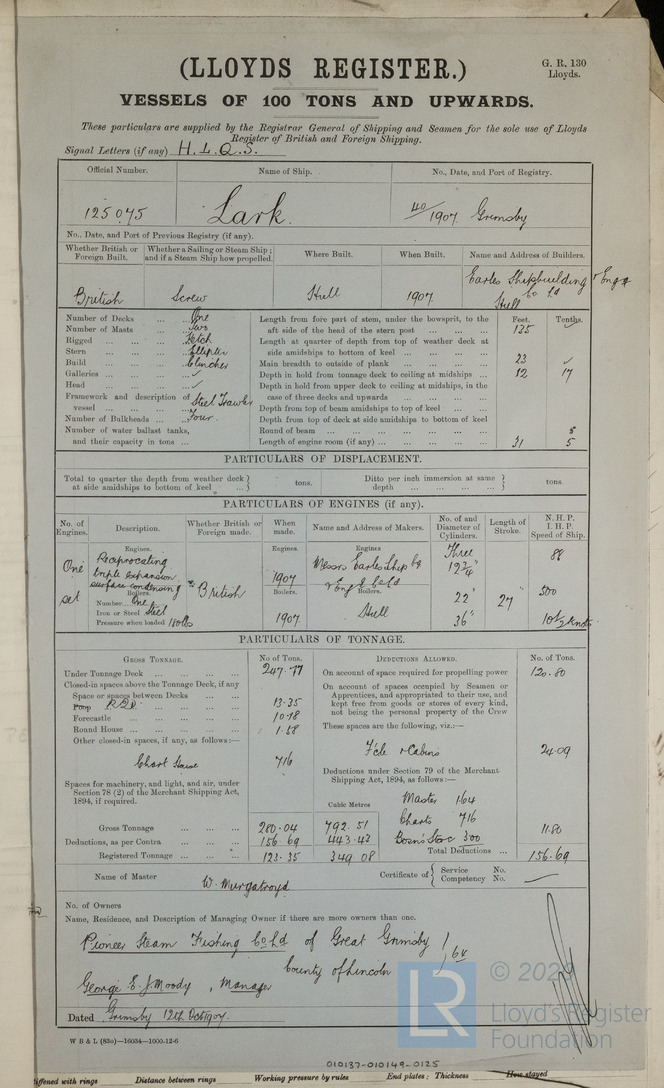 (LLOYDS REGISTER.)
G. R. 130
Lloyds.
VESSELS OF 100 TONS AND UPWARDS.
These particulars are supplied by the Registrar General of Shipping and Seamen for the sole use of Lloyds
Register of British and Foreign Shipping.
Signal Letters (if any) H.L.Q.S.
Official Number. Name of Ship. No., Date, and Port of Registry.
125075 Lark. 40/1907 Grimsby
No., Date, and Port of Previous Registry (if any).
Whether British or Foreign Built. Whether a Sailing or Steam Ship; and if a Steam Ship how propelled. Where Built. When Built. Name and Address of Builders.
British Screw Hull 1907 Earles Shipbuilding & Eng g Co Ld Hull
Number of Decks ... One
Number of Masts ... Two
Rigged ... Ketch
Stern ... Elliptic
Build ... Clincher
Galleries ... ✓
Head ... ✓
Framework and description of vessel ... Steel Trawler
Number of Bulkheads ... Four
Number of water ballast tanks,
and their capacity in tons ...
Feet. Tenths.
Length from fore part of stem, under the bowsprit, to the
aft side of the head of the stern post ... 135 ✓
Length at quarter of depth from top of weather deck at
side amidships to bottom of keel ...
Main breadth to outside of plank ... 23 ✓
Depth in hold from tonnage deck to ceiling at midships ... 12 17
Depth in hold from upper deck to ceiling at midships, in the
case of three decks and upwards ...
Depth from top of beam amidships to top of keel ...
Depth from top of deck at side amidships to bottom of keel
Round of beam ...
Length of engine room (if any) ... 31 5
PARTICULARS OF DISPLACEMENT.
Total to quarter the depth from weather deck
at side amidships to bottom of keel ... tons.
Ditto per inch immersion at same
depth ... tons
PARTICULARS OF ENGINES (if any).
No. of Engines. Description. Whether British or Foreign made. When made. Name and Address of Makers. No. of and Diameter of Cylinders. Length of Stroke. N. H. P. I. H. P. Speed of Ship.
Engines. Engines. Engines
One Reciprocating Three 88
triple expansion 1907 Messrs Earles Ship bg 12¾"
surface condensing & Eng g Co Ld
set Boilers. British Boilers. Boilers. 22" 27" 500
Number... One
Iron or Steel Steel Hull
Pressure when loaded 180 lbs 1907 36" 10½ knots
PARTICULARS OF TONNAGE.
GROSS TONNAGE. No of Tons.
Under Tonnage Deck ... 247.77
Closed-in spaces above the Tonnage Deck, if any
Space or spaces between Decks ...
Poop 13.35
Forecastle ... 10.18
Round House ... 1.58
Other closed-in spaces, if any, as follows:—
Chart House 7.16
Spaces for machinery, and light, and air, under
Section 78 (2) of the Merchant Shipping Act,
1894, if required.
Cubic Metres
Gross Tonnage ... 280.04 792.51
Deductions, as per Contra ... 156.69 443.43
Registered Tonnage ... 123.35 349 08
DEDUCTIONS ALLOWED. No. of Tons.
On account of space required for propelling power 120.80
On account of spaces occupied by Seamen or
Apprentices, and appropriated to their use, and
kept free from goods or stores of every kind,
not being the personal property of the Crew
These spaces are the following, viz.:—
F'cle & Cabins 24.09
Deductions under Section 79 of the Merchant
Shipping Act, 1894, as follows:—
Master 1.64
Charts 7.16
Bosn's Store 3.00 11.80
Total Deductions ... 156.69
Name of Master W. Murgatroyd Certificate of Service No.
Competency No.
No. of Owners
Name, Residence, and Description of Managing Owner if there are more owners than one.
Pioneer Steam Fishing Co Ld of Great Grimsby
County of Lincoln 64
George E. J. Moody, Manager
Dated Grimsby 12th Oct 1907.
W B & L (83o)—16034—1000-12-6
© 202
LR Lloyd's Register
Foundation
010137-010149-0125
iffened with rings Distance between rings Working pressure by rules End plates: Thickness How stayed